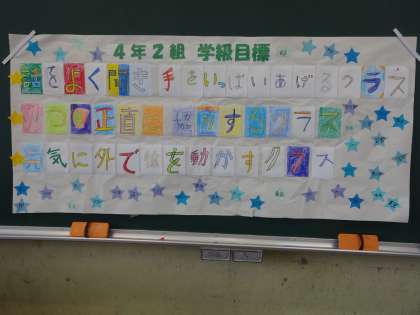 4年2組 学級目標
話をよく聞き手をいっぱいあげるクラス
正直 すクラス
元気に外で体を動かすクラス